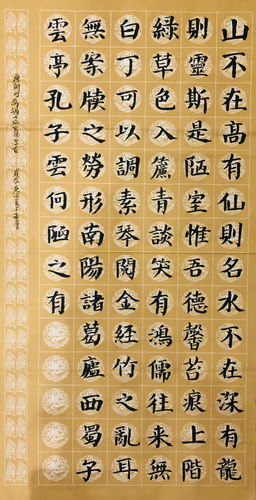 山不在高有仙則名水不在深有龍
則靈斯是陋室惟吾德馨苔痕上階
綠草色入簾青談笑有鴻儒往來無
白丁可以調素琴閱金經竹之亂耳
無案牘之勞形南陽諸葛廬西蜀子
雲亭孔子雲何陋之有